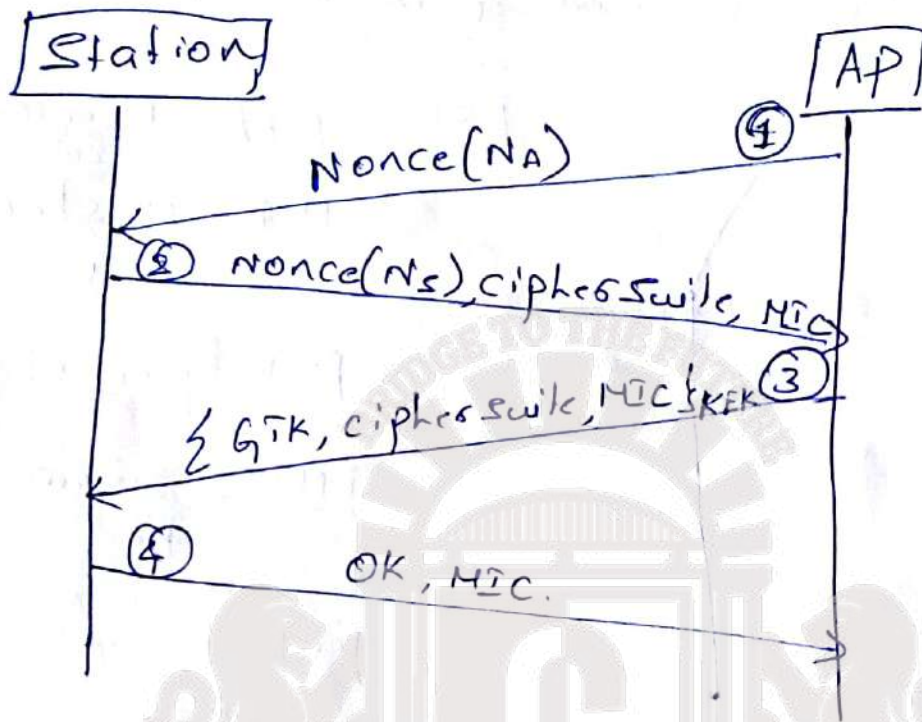 Station
AP
①
Nonce(NA)
②
Nonce(Ns), cipher Suite, MIC
③
{ GTK, cipher suite, MIC}KEK
④
OK, MIC.
BRIDGE TO THE FUTURE